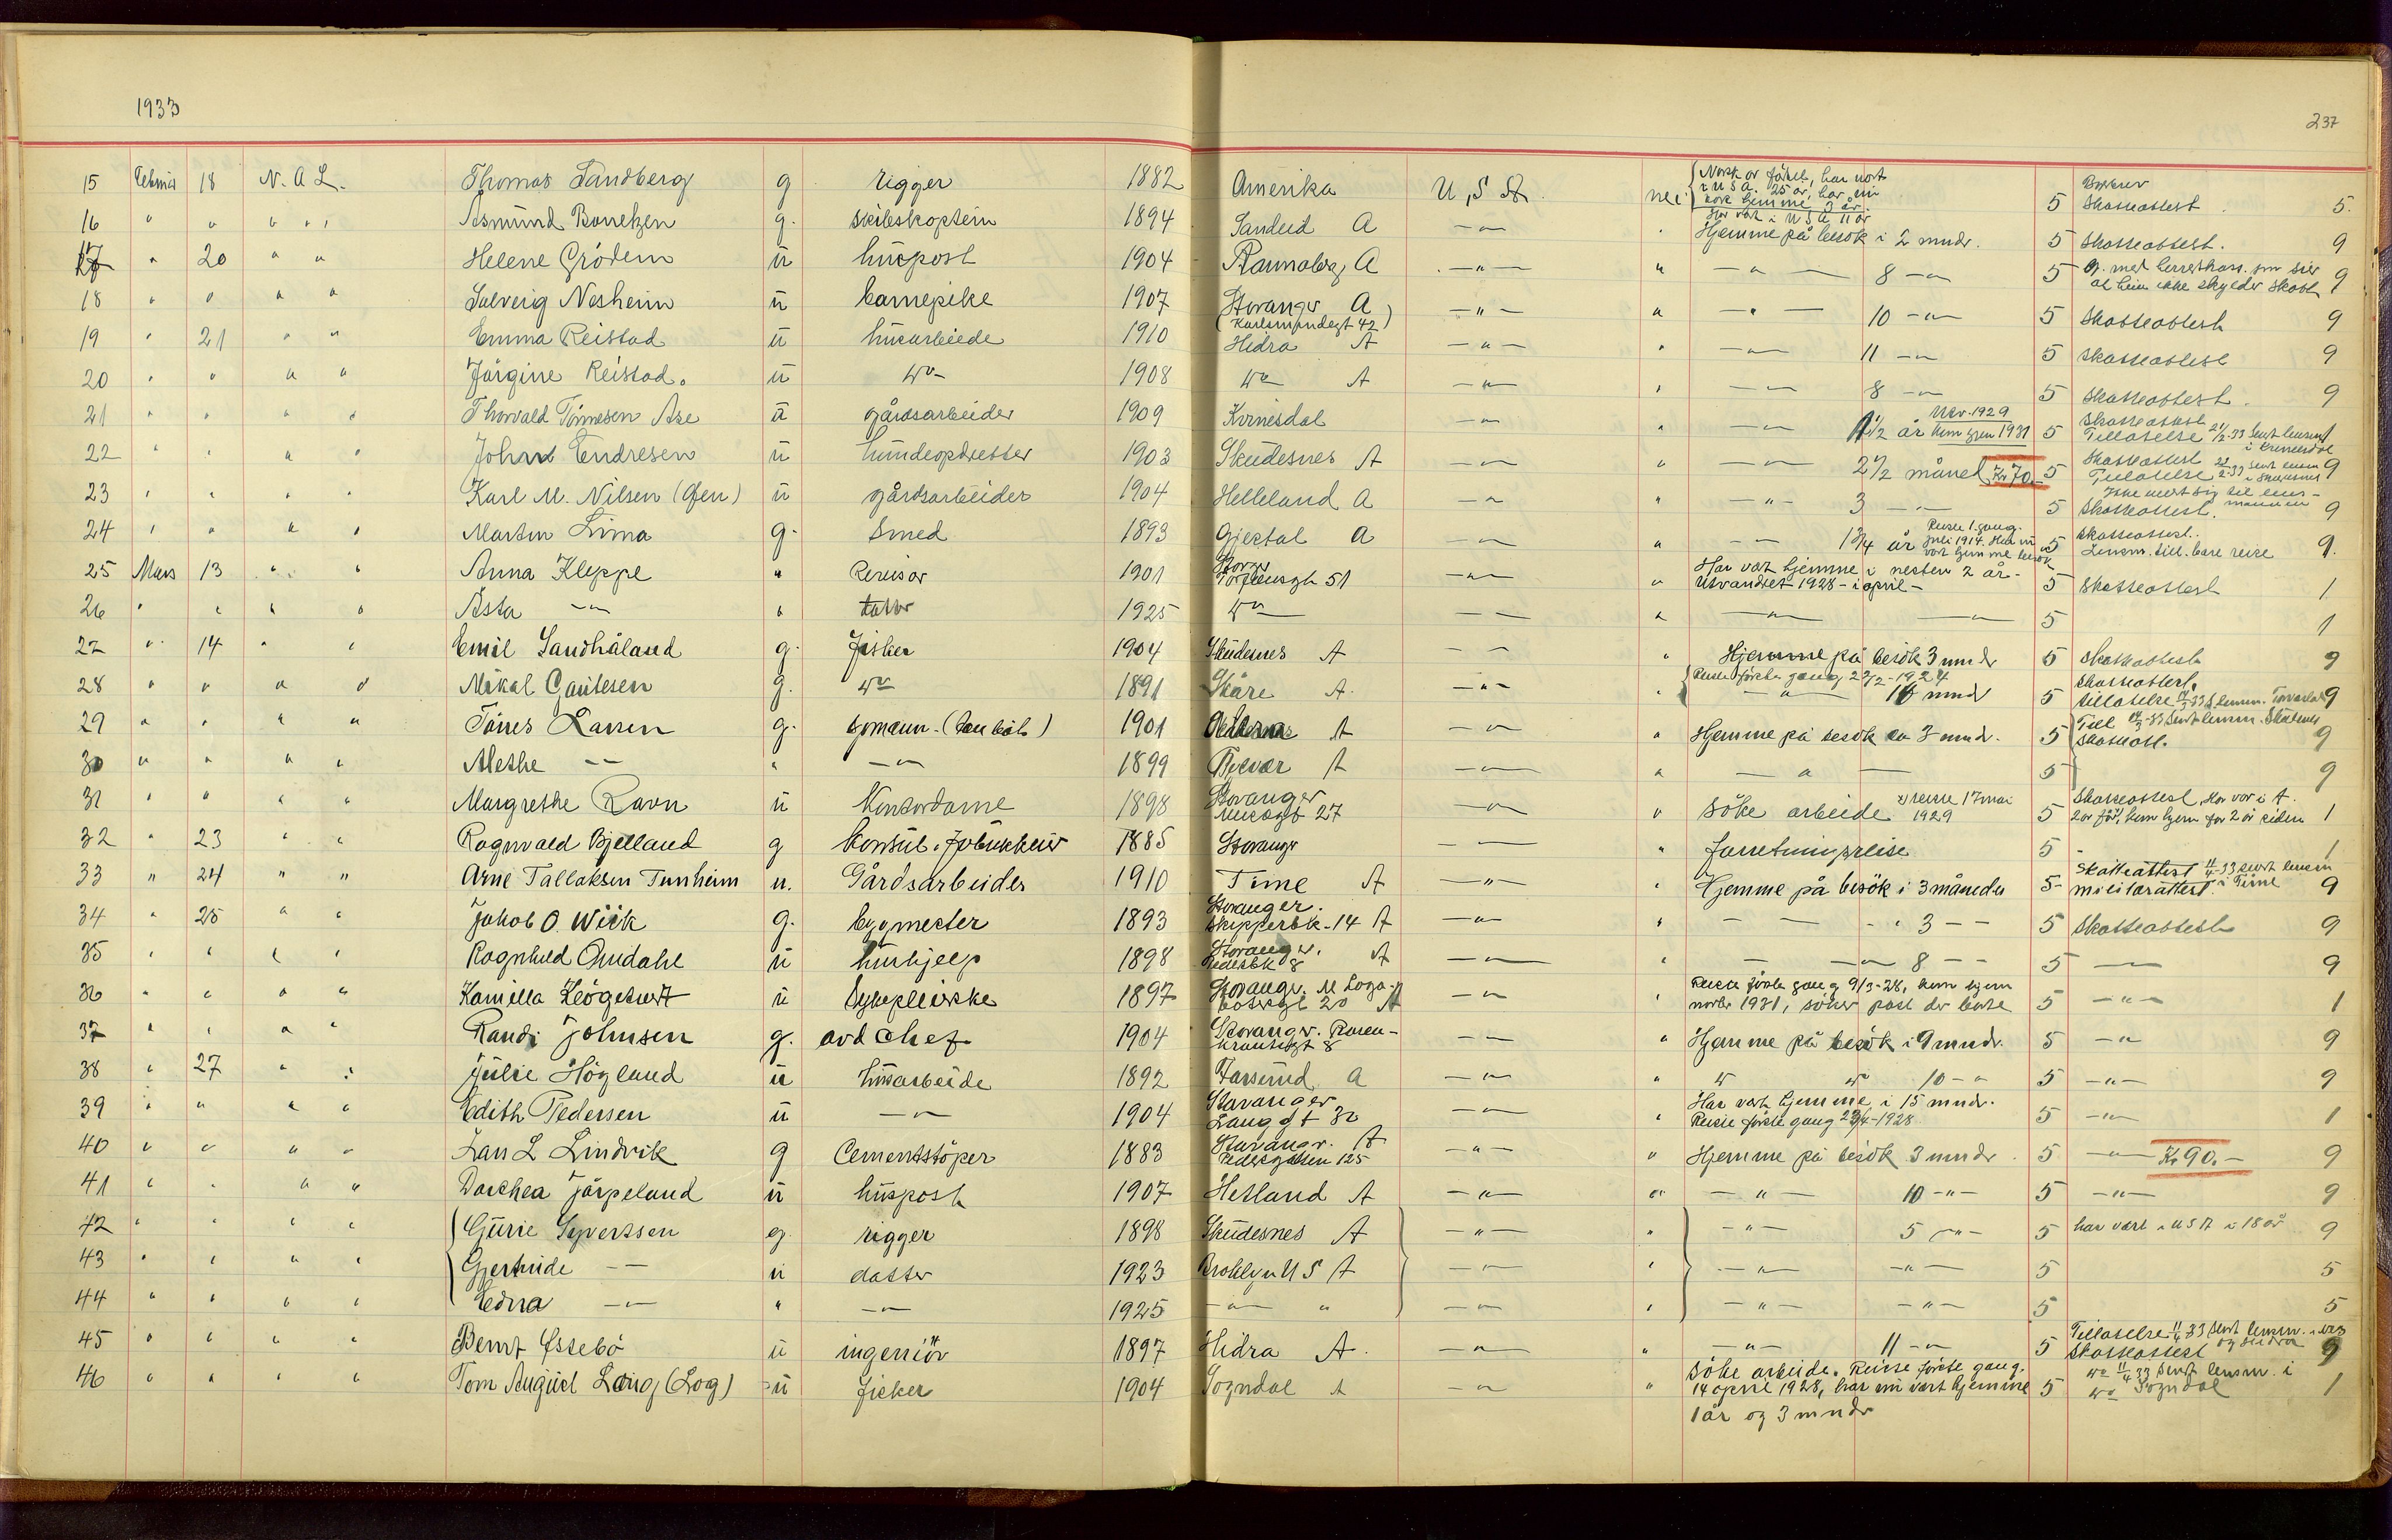 1933
237
15 Februar 18 N. A. L. Thomas Sandberg g rigger 1882 Amerika U, S St. nei Norsk av födsel, har vært i U S A. 25 år, har nu vært hjemme 3 år. 5 Skatteattest. 5.
16 " " " " Asmund Bonetzen g. skibskaptein 1894 Sandeid A —"— " Har vært i U S A 11 år Hjemme på besök i 2 mndr. 5 Skatteattest. 9
17 " 20 " " Helene Grödem u huspost 1904 A —"— " —"— 8 —"— 5 9
18 " " " " Solveig Nesheim u barnepike 1907 Stavanger A —"— " —"— 10 —"— 5 Skatteattest 9
19 " 21 " " Emma Reistad u husarbeide 1910 Hidra A —"— " —"— 11 —"— 5 Skatteattest 9
20 " " " " Jörgine Reistad. u do 1908 do A —"— " —"— 8 —"— 5 Skatteattest. 9
21 " " " " Thorvald Tönnesen Åse u gårdsarbeider 1909 Kvinesdal —"— " —"— 1½ år Utv. 1929 kom hjem 1931 5 Skatteattest Tillatelse 21/2-33 sendt lensm. i Kvinesdal
22 " " " " John Endresen u hundeopdretter 1903 Skudesnes A —"— " —"— 2½ måned Kr 70.— 5 Skatteattest Tillatelse 9
23 " " " " Karl M. Nilsen (Ofen) u gårdsarbeider 1904 Helleland A —"— " —"— 3 —"— 5 Skatteattest. 9
24 " " " " Martin Lima g. Smed 1893 Gjestal A —"— " —"— 1¾ år Reiste 1. gang. juli 1914. 5 Skatteattest. Lensm. till. bare reise 9.
25 Mars 13 " " Anna Kleppe " Revisor 1901 51 —"— " Har vært hjemme i nesten 2 år - Utvandret 1928 - i april - 5 Skatteattest 1
26 " " " " Åsta —"— " datter 1925 do —"— " —"— —"— 5 1
27 " 14 " " Emil Sandhåland g. Fisker 1904 Skudesnes A —"— " Hjemme på besök 3 mndr 5 Skatteattest 9
28 " " " " Mikal Gautesen g. do 1891 Skåre A. —"— " Reiste förste gang 22/2-1924 —"— mndr 5 Skatteattest, tillatelse 9
29 " " " " Tönes Larsen g. sjömann - 1901 A —"— " Hjemme på besök ca 3 mndr. 5 Skatteatt. 9
30 " " " " Alethe —"— " —"— 1899 A —"— " —"— 5 9
31 " " " " Margrethe Ravn u Kontordame 1898 Stavanger 27 —"— " Söke arbeide reiste 17 mai 1929 5 Skatteattest, Har vær i A. 2 år för, kom hjem for 2 år siden 1
32 " 23 " " Ragnvald Bjelland g Konsul, Fabrikkeier 1885 Stavanger —"— " Forretningsreise 5 - 1
33 " 24 " " Arne Tallaksen Tunheim u. Gårdsarbeider 1910 Time A —"— " Hjemme på besök i 3 måneder 5- Skatteattest 11/4-33 sendt lensm militærattest i Time 9
34 " 25 " " Jakob O. Wiik g. bygmester 1893 Stavanger. Skipperbk. 14 A —"— " — — " 3 — — 5 Skatteattest 9
35 " " " " Ragnhild Omdahl u hushjelp 1898 Stavanger. 8 A —"— " — —"— 8 — — 5 —"— 9
36 " " " " Kamilla u Sykepleierske 1897 Stavanger. 20 A —"— " Reiste förste gang 9/3-28, kom hjem novbr 1931, söker post der borte 5 —"— 1
37 " " " " Randi Johnsen g. avd chef 1904 Stavanger. Rosenkrantzgt 8 —"— " Hjemme på besök i 9 mndr. 5 —"— 9
38 " 27 " " Julie Högland u husarbeide 1892 Farsund A —"— " do do 10 —"— 5 —"— 9
39 " " " " Edith Pedersen u —"— 1904 Stavanger Langgt 32 —"— " Har vært hjemme i 15 mndr. Reiste förste gang 23/4-1928 5 —"— 1
40 " " " " Lars L Lindvik g Cementstöper 1883 Stavanger. A Pedersgaten 125 —"— " Hjemme på besök 3 mndr. 5 —"— Kr 90.— 9
41 " " " " Dorthea Jörpeland u huspost 1907 Hetland A —"— " —"— 10 —"— 5 —"— 9
42 " " " " Gurie Syvertsen g. rigger 1898 Skudesnes A —"— " —"— 5 —"— 5 har vært i U S A i 18 år 9
43 " " " " Gjertrude —"— u datter 1923 Broklyn U S A —"— " —"— —"— 5 5
44 " " " " Edna —"— " —"— 1925 —"— " —"— " —"— —"— 5 5
45 " " " " Bernt Östebö u ingeniör 1897 Hidra A. —"— " —"— 11 —"— 5 Tillatelse 11/4 33 sendt lensm. i Skatteattest og Hidra 9
46 " " " " Tom August Laug (Log) u fisker 1904 Sogndal A —"— " Söke arbeide. Reiste förste gang. 14 april 1928, har nu vært hjemme 1 år og 3 mndr 5 do 11/4 33 sendt lensm. i do Sogndal 1